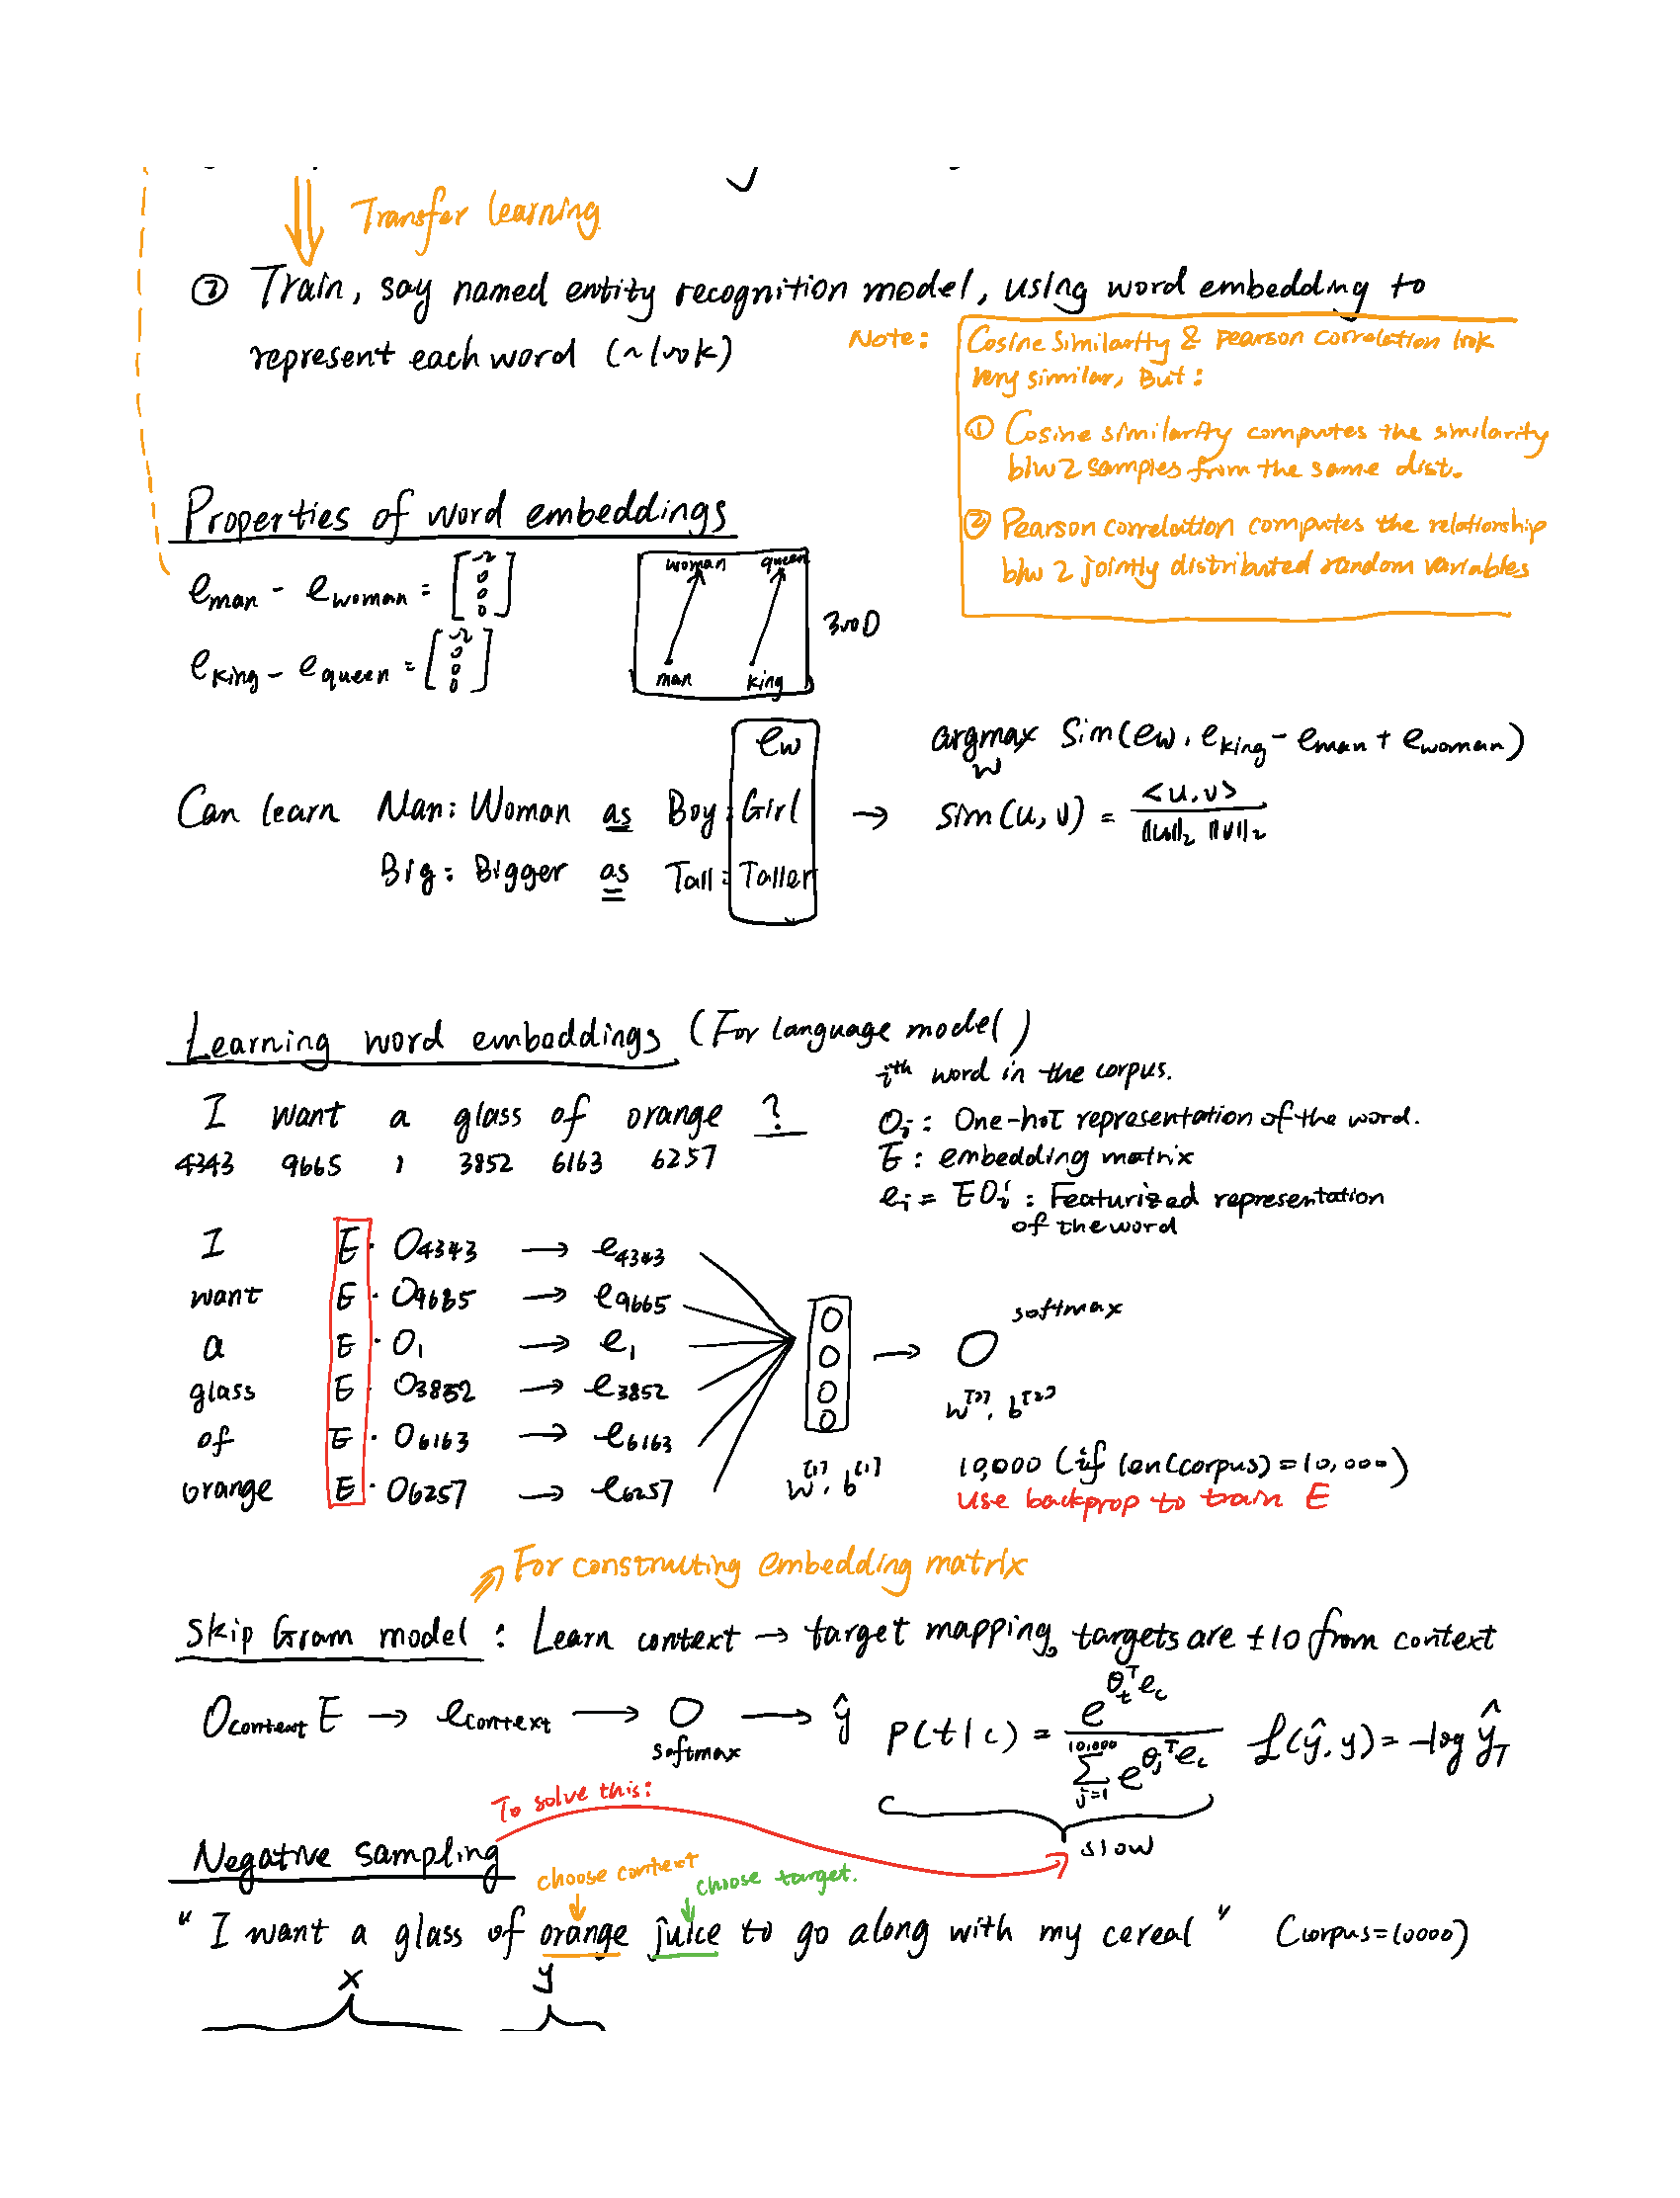 Transfer learning
② Train, say named entity recognition model, using word embedding to
represent each word (~100k)
Note: Cosine Similarity & Pearson correlation look
very similar, But:
① Cosine similarity computes the similarity
b/w 2 samples from the same dist.
② Pearson correlation computes the relationship
b/w 2 jointly distributed random variables
Properties of word embeddings
e_man - e_woman = [-2 0 0 0]
woman queen
man king
300D
e_king - e_queen = [-2 0 0 0]
e_w
argmax_w Sim(e_w, e_king - e_man + e_woman)
Can learn Man: Woman as Boy: Girl → sim(u, v) = <u,v> / ||u||₂ ||v||₂
Big: Bigger as Tall: Taller
Learning word embeddings (For language model)
i^th word in the corpus.
I want a glass of orange ?
O_i: One-hot representation of the word.
4343 9665 1 3852 6163 6257
E: embedding matrix
e_i = EO_i: Featurized representation
of the word
I E · O_4343 → e_4343
want E · O_9665 → e_9665
a E · O_1 → e_1
glass E · O_3852 → e_3852
of E · O_6163 → e_6163
orange E · O_6257 → e_6257
W^[1], b^[1]
softmax
W^[2], b^[2]
10,000 (if len(corpus)=10,000)
use backprop to train E
For constructing embedding matrix
Skip Gram model: Learn context → target mapping, targets are ±10 from context
O_context E → e_context → O → ŷ P(t|c) = e^{θ_t^T e_c} / Σ_{j=1}^{10,000} e^{θ_j^T e_c} L(ŷ, y) = -log ŷ_T
softmax
To solve this:
slow
Negative sampling
choose context choose target.
"I want a glass of orange juice to go along with my cereal" (corpus=10000)
x y